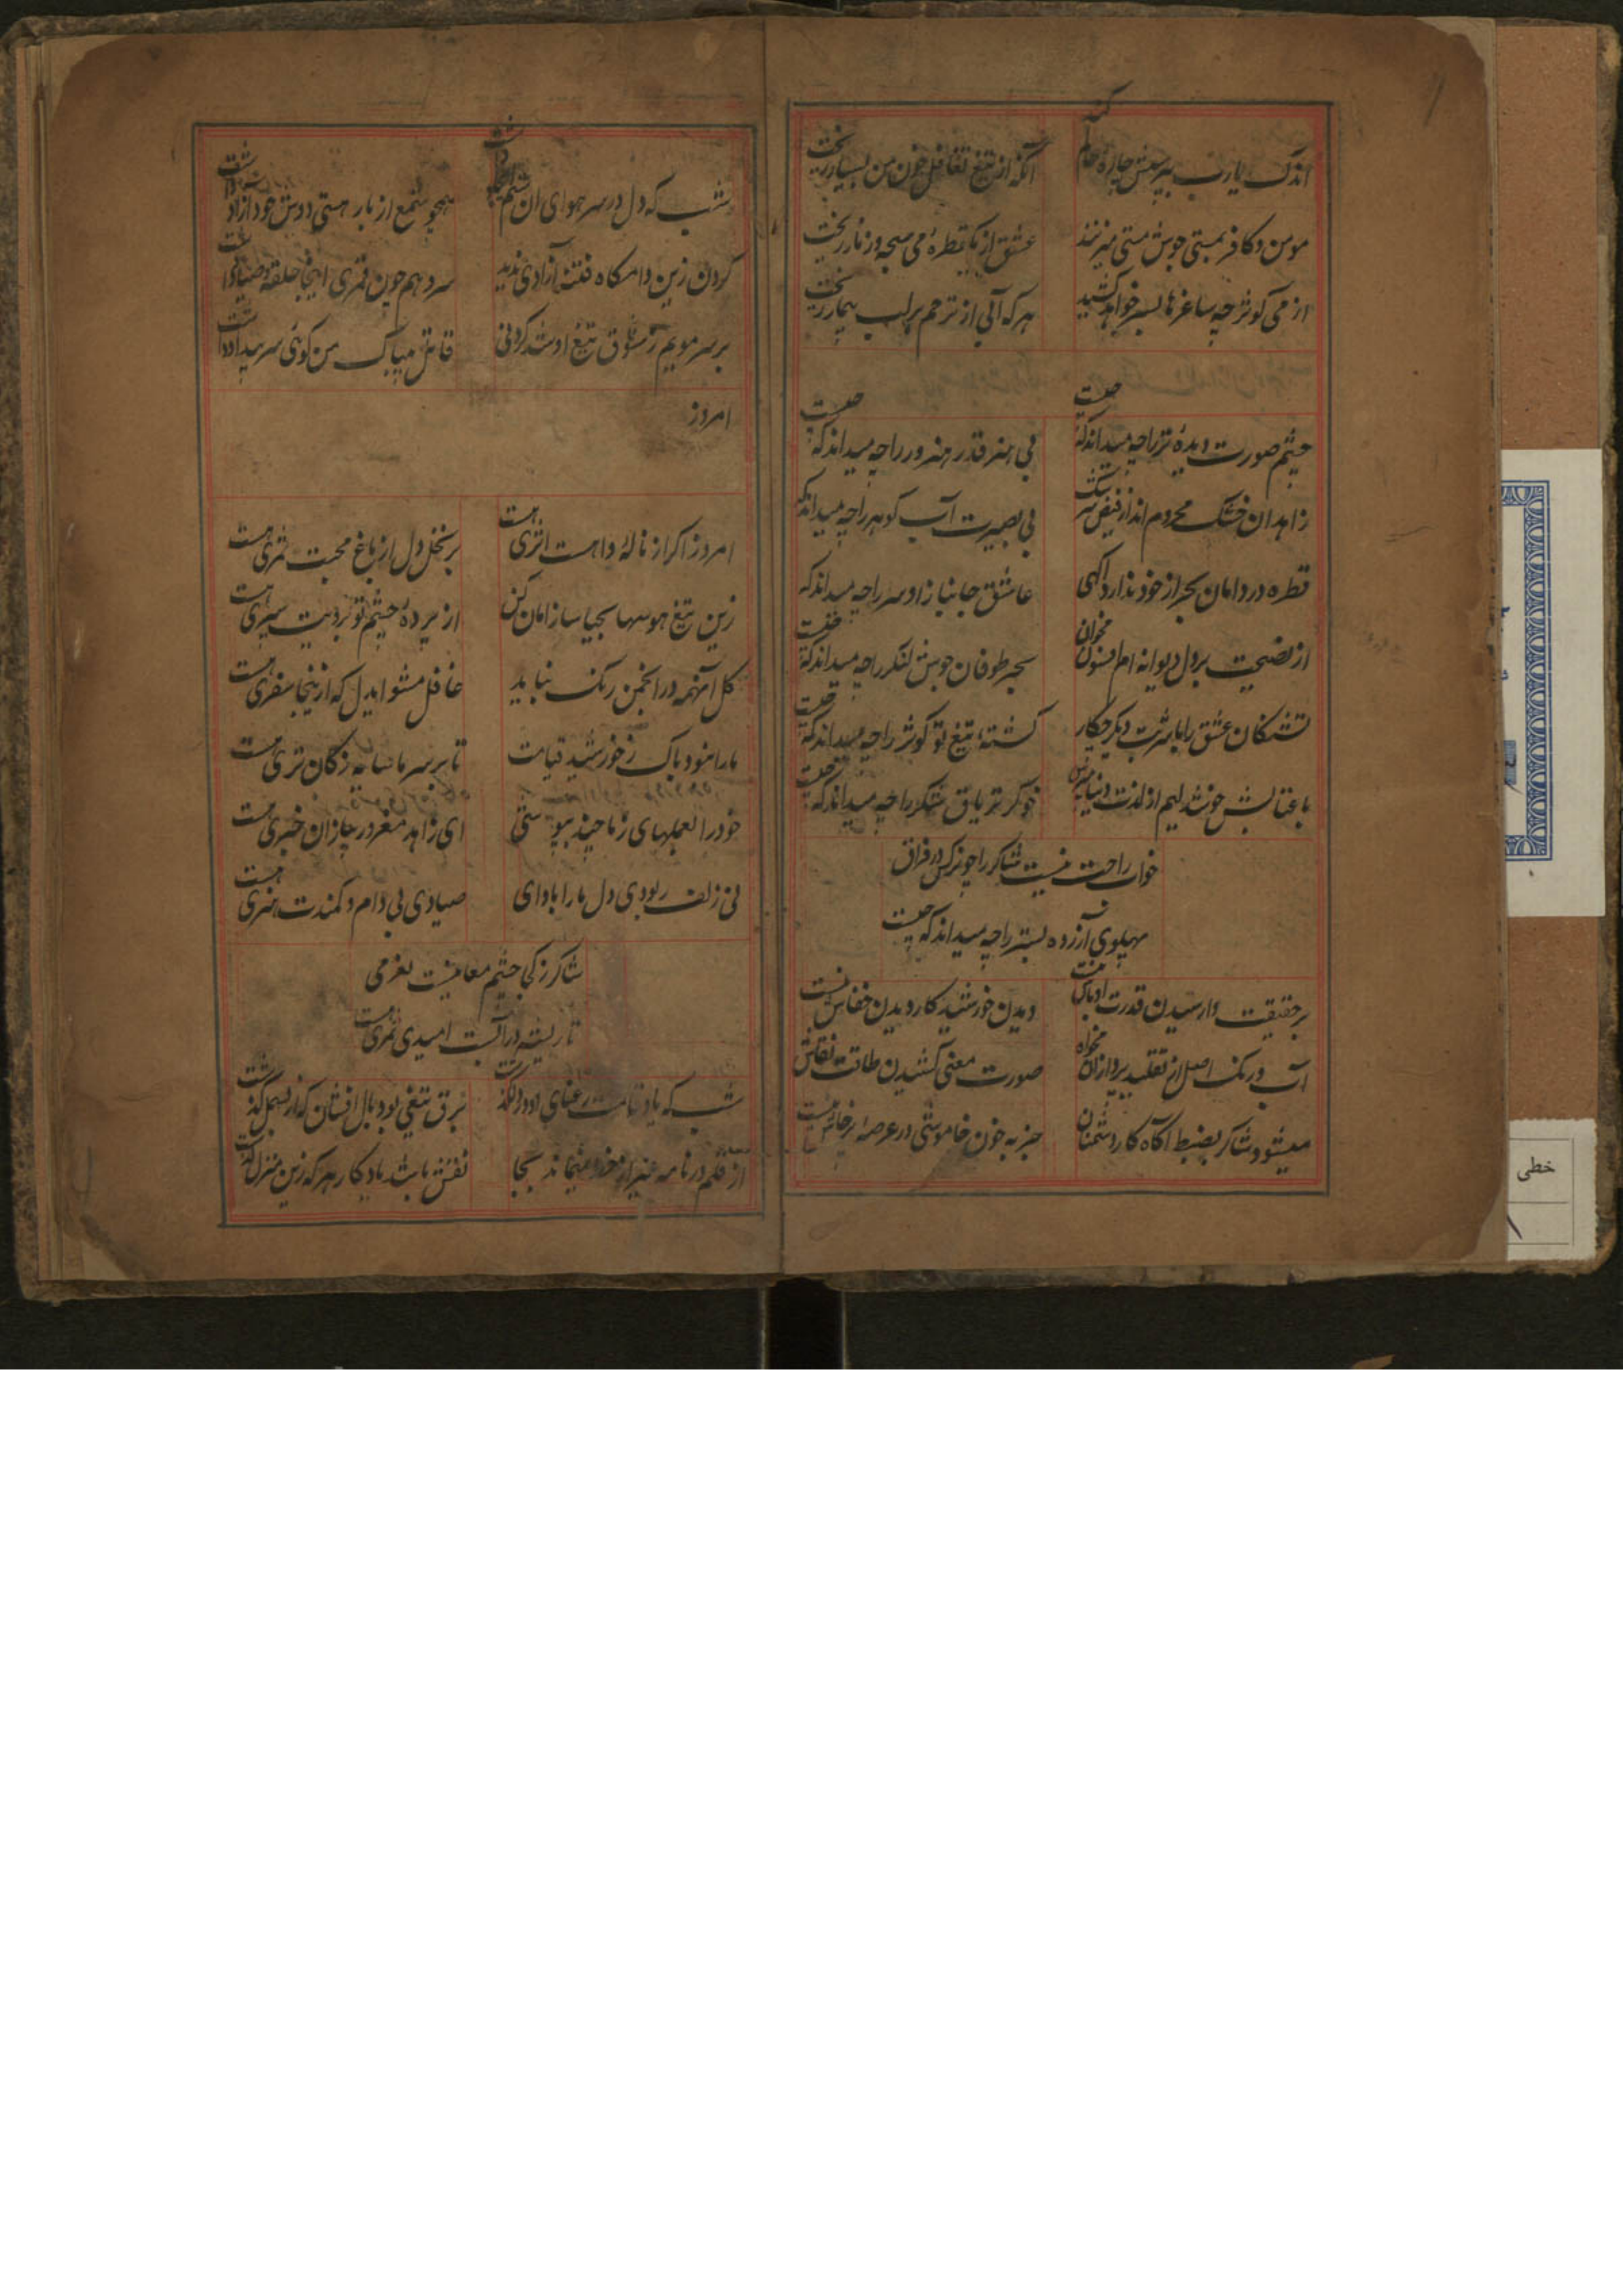 اندک یارب بپرسش چاره کنه
آنکه از تیغ تغافل خون من بسیار ریخت
مومن و کافر بمستی جوش مستی میزنند
عشق از یک قطره می سبحه و زنار ریخت
از می کوثر چه ساغرها بسر خواهد کشید
هر که آبی از ترحم بر لب بیمار ریخت
چشم صورت دیده تر را چه میداند که چیست
بی هنر قدر هنرور را چه میداند که چیست
زاهدان خشک محروم اند از فیض
بی بصیرت آب کوهر را چه میداند که
قطره در دامان بحر از خود ندارد اکهی
عاشق جانباز او سر را چه میداند که
از نصیحت بر دل دیوانه ام افسون مخوان
بحر طوفان جوش لنکر را چه میداند که چیست
تشنکان عشق را با شربت دیکر چکار
کشته تیغ تو کوثر را چه میداند که چیست
با عتابش خوشدلیم از لذت دنیا مپرس
خوکر تریاق شکر را چه میداند که چیست
خواب راحت نیست شاکر را چو نرکس در فراق
پهلوی آزرده بستر را چه میداند که چیست
بر حقیقت وارسیدن قدرت اوباش نیست
دیدن خورشید کار دیدن خفاش نیست
آب و رنک اصل از تقلید پردازان مخواه
صورت معنی کشیدن طاقت نقاش
میشود شاکر بضبط آکاه کار دشمنان
حربه چون خاموشی در عرصه پرخاش نیست
شب که دل در سر هوای ان
همچو شمع از بار هستی دوش خود آزاد داشت
کردن زین دامکاه فتنه آزادی ندید
سرو هم چون قمری اینجا حلقه صیاد داشت
بر سر مویم ز شوق تیغ او شد کردنی
قاتل بیباک من کوئی سر بیداد داشت
امروز
امروز اکر از ناله و اهت اثری هست
بر نخل دل از باغ محبت ثمری هست
زین تیغ هوسها بحیا ساز امان کن
از پرده چشم تو برویت سپری هست
کل اینهمه در انجمن رنک نباید
غافل مشو ایدل که ازینجا سفری هست
ما را نبود باک ز خورشید قیامت
تا بر سر ما سایه مژکان تری هست
خود را بعملهای زما چند
ای زاهد مغرور چازان خبری هست
بی زلف ربودی دل ما را بادای
صیادی بی دام و کمندت هنری هست
شاکر ز کی چشم معانیست بغرمی
تا ریشه در آبست امیدی ثمری هست
شب که یاد قامت رعنای او در دل کذشت
برق تیغی بود بال افشان که از بسمل کذشت
از قلم در نامه غیر از خط نمیماند بجا
نقش باشد یادکار هر که زین منزل کذشت
خطی